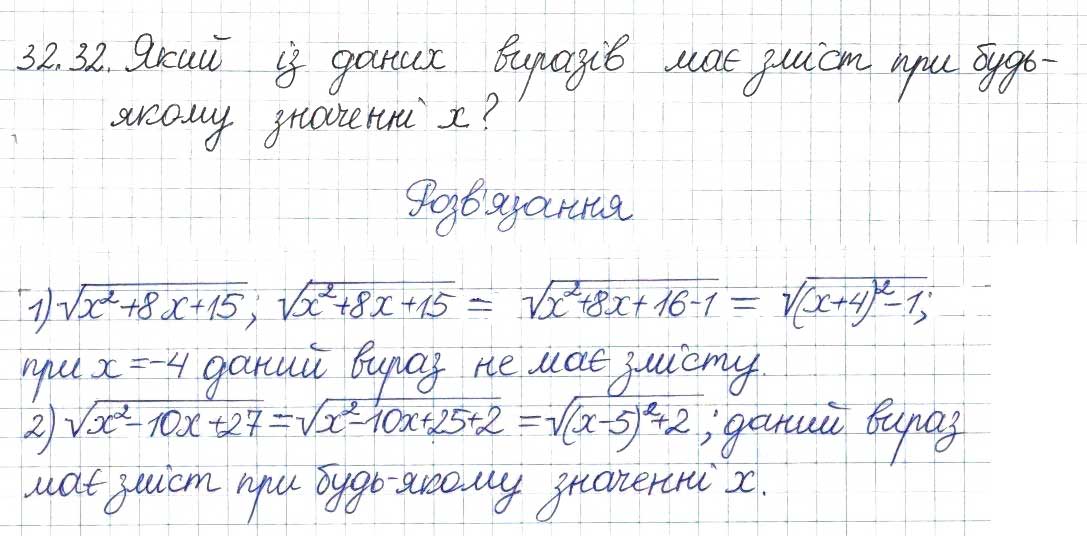 32.32. Який із даних виразів має зміст при будь-
якому значенні x?
Розв'язання
1) √(x²+8x+15); √(x²+8x+15) = √(x²+8x+16-1) = √((x+4)²-1);
при x=-4 даний вираз не має змісту.
2) √(x²-10x+27) = √(x²-10x+25+2) = √((x-5)²+2); даний вираз
має зміст при будь-якому значенні x.